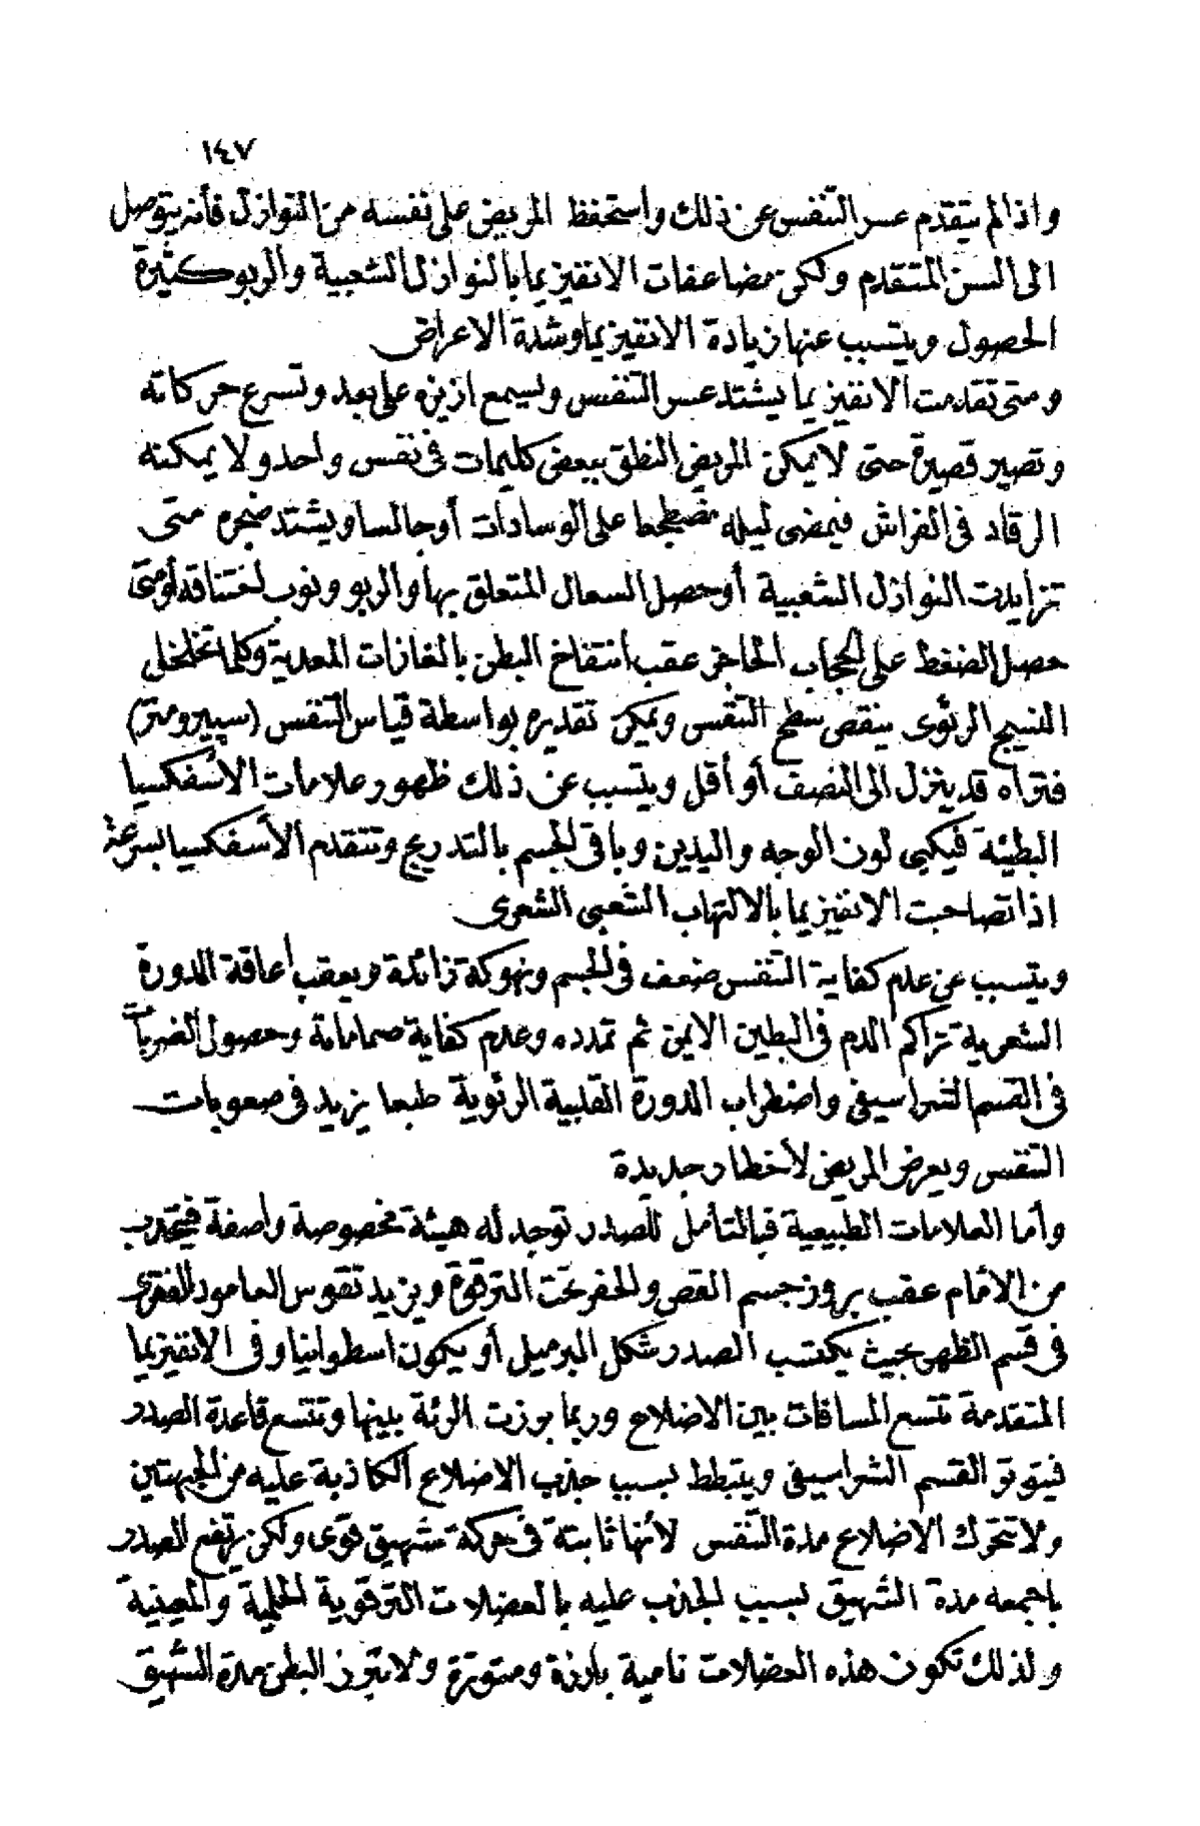 ١٤٧
واذا لم يتقدم عسر التنفس عن ذلك واستحفظ المريض على نفسه من النوازل فأنه يتوصل
الى السن المتقدم ولكن مضاعفات الانفيزيما بالنوازل الشعبية والربو كثيرة
الحصول ويتسبب عنها زيادة الانفيزيما وشدة الاعراض
ومتى تقدمت الانفيزيما يشتد عسر التنفس ويسمع ازيزه على بعد وتسرع حركاته
وتصير قصيرة حتى لا يمكن المريض النطق ببعض كليمات فى نفس واحد ولا يمكنه
الرقاد فى الفراش فيمضى ليله مضطجعا على الوسادات أو جالسا ويشتد ضجره متى
تزايدت النوازل الشعبية أو حصل السعال المتعلق بها والربو ونوب اختناقه أو متى
حصل الضغط على الحجاب الحاجز عقب انتفاخ البطن بالغازات المعدية وكلما تخلخل
النسيج الرئوى ينقص سطح التنفسى ويمكن تقديره بواسطة قياس التنفس (سپيرومتر)
فتراه قد ينزل الى النصف أو أقل ويتسبب عن ذلك ظهور علامات الأسفكسيا
البطيئة فيكبى لون الوجه واليدين وباقى الجسم بالتدريج وتتقدم الأسفكسيا بسرعة
اذا تصاحبت الانفيزيما بالالتهاب الشعبى الشعرى
ويتسبب عن عدم كفاية التنفس ضعف فى الجسم ونهوكة زائدة ويعقب اعاقة الدورة
الشعرية تراكم الدم فى البطين الايمن ثم تمدده وعدم كفاية صماماته وحصول الضربات
فى القسم الشراسيفى واضطراب الدورة القلبية الرئوية طبعا يزيد فى صعوبات
التنفس ويعرض المريض لأخطار جديدة
وأما العلامات الطبيعية فبالتأمل للصدر توجد له هيئة مخصوصة واصفة فيتحدب
من الامام عقب بروز جسم القص والحفر تحت الترقوة ويزيد تقوس العامود الفقرى
فى قسم الظهر بحيث يكتسب الصدر شكل البرميل أو يكون اسطوانيا وفى الانفيزيما
المتقدمة تتسع المسافات بين الاضلاع وربما برزت الرئة بينها وتتسع قاعدة الصدر
فيتوتر القسم الشراسيفى ويتبطط بسبب جذب الاضلاع الكاذبة عليه من الجهتين
ولا تتحرك الاضلاع مدة التنفس لأنها ثابتة فى حركة شهيق قوى ولكن يرتفع الصدر
باجمعه مدة الشهيق بسبب الجذب عليه بالعضلات الترقوية الحلمية والمعينية
ولذلك تكون هذه العضلات نامية بارزة ومتوترة ولا تبرز البطن مدة الشهيق